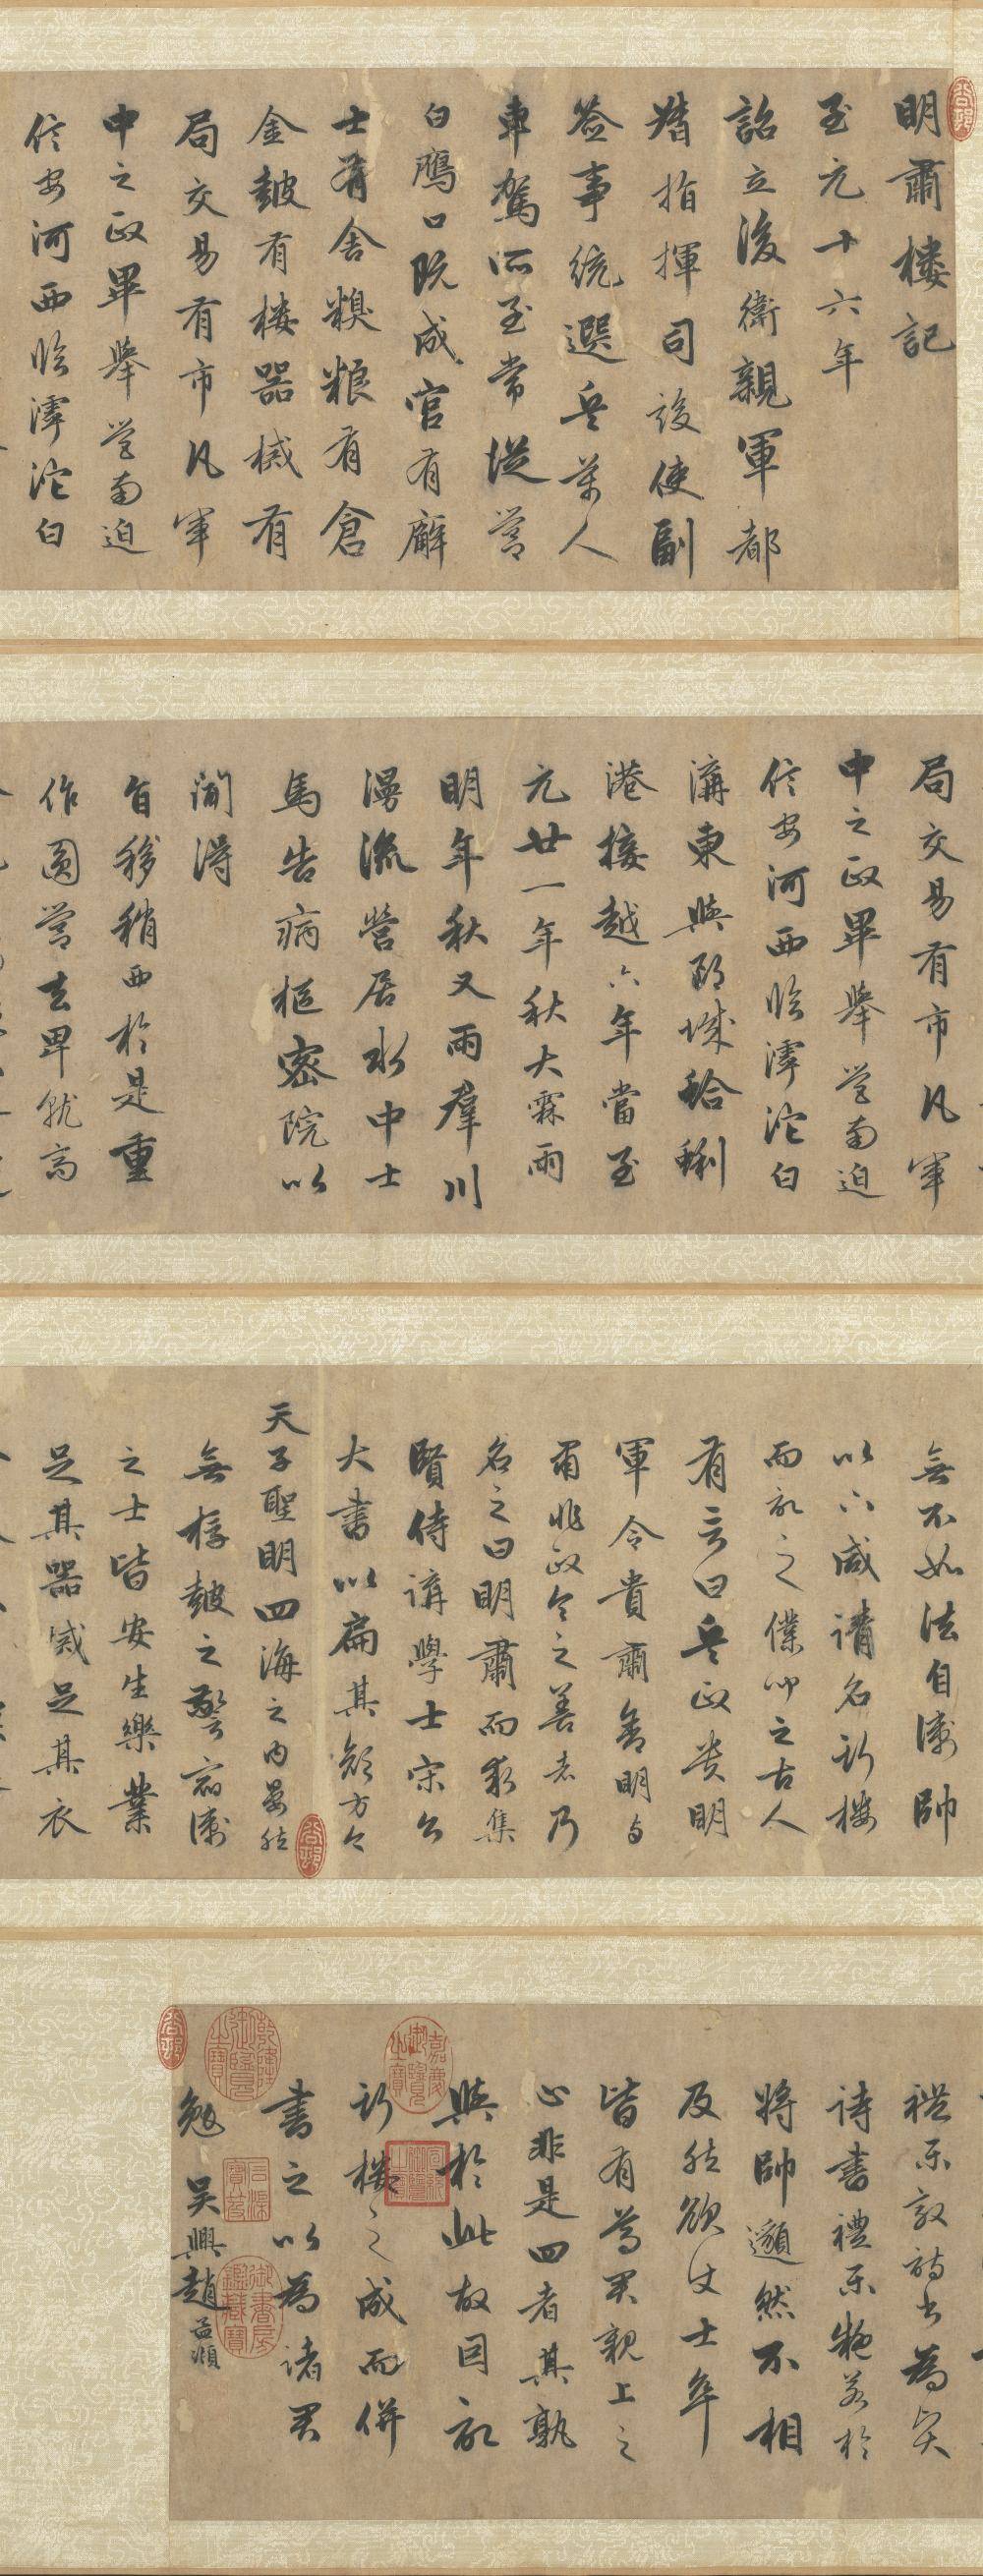 明肅樓記
至元十六年
詔立後衛親軍都
指揮司設使副
簽事統選兵萬人
車駕所至常從營
白鴈口既成官有廨
士有舍糗粮有倉
金皷有樓器械有
局交易有市凡軍
中之政畢舉營南迫
信安河西臨滹沱白
局交易有市凡軍
中之政畢舉營南迫
信安河西臨滹沱白
溝東與
港接越六年當至
元廿一年秋大霖雨
明年秋又雨羣川
漫流營居水中士
馬告病樞密院以
聞得
旨移稍西於是重
作圓營去卑就高
無不如法自衛帥
以下咸請名新樓
而記之僕聞之古人
有言曰兵政貴明
軍令貴肅舍明与
肅非政令之善者乃
名之曰明肅而求集
賢侍講學士宋公
大書以扁其顏方今
天子聖明四海之內晏然
無桴皷之警宿衛
之士皆安生樂業
足其器械足其衣
禮樂敦詩書為賢
詩書禮樂
將帥邈然不相
及然欲使士卒
皆有尊君親上之
心非是四者其孰
與於此故因記
新樓之成而併
書之以為諸君
勉 吳興趙孟頫
嘉慶御覽之寶
乾隆御覽之寶
御書房鑑藏寶